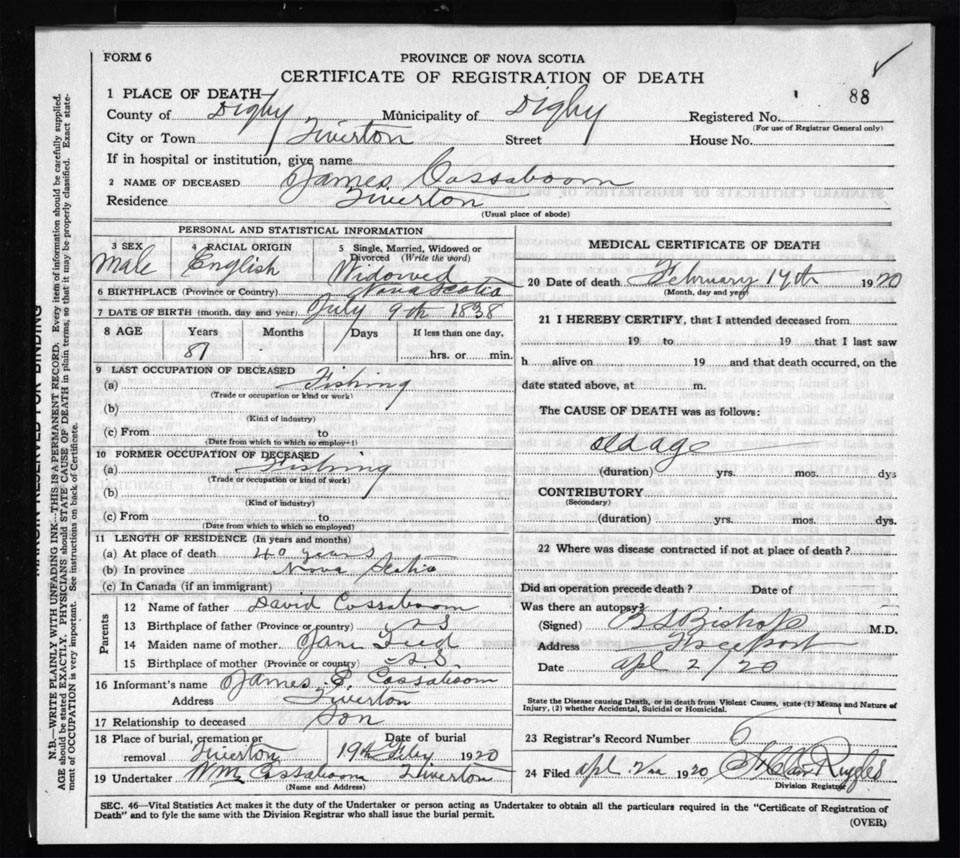 FORM 6
PROVINCE OF NOVA SCOTIA
CERTIFICATE OF REGISTRATION OF DEATH
88
1 PLACE OF DEATH
County of Digby Municipality of Digby Registered No.
(For use of Registrar General only)
City or Town Tiverton Street House No.
If in hospital or institution, give name
2 NAME OF DECEASED James Cossaboom
Residence Tiverton
(Usual place of abode)
PERSONAL AND STATISTICAL INFORMATION
3 SEX 4 RACIAL ORIGIN 5 Single, Married, Widowed or Divorced (Write the word)
Male English Widowed
6 BIRTHPLACE (Province or Country) Nova Scotia
7 DATE OF BIRTH (month, day and year) July 9th 1838
8 AGE Years Months Days If less than one day,
81 hrs. or min.
9 LAST OCCUPATION OF DECEASED
(a) Fishing
(Trade or occupation or kind or work)
(b)
(Kind of industry)
(c) From to
(Date from which to which so employ-1)
10 FORMER OCCUPATION OF DECEASED
(a) Fishing
(Trade or occupation or kind of work)
(b)
(Kind of industry)
(c) From to
(Date from which to which so employed)
11 LENGTH OF RESIDENCE (In years and months)
(a) At place of death 40 years
(b) In province Nova Scotia
(c) In Canada (if an immigrant)
Parents
12 Name of father David Cossaboom
13 Birthplace of father (Province or country) N.S
14 Maiden name of mother Jane
15 Birthplace of mother (Province or country) N.S.
16 Informant's name James Cossaboom
Address Tiverton
17 Relationship to deceased Son
18 Place of burial, cremation or removal Tiverton Date of burial 19th Feby 1920
19 Undertaker Wm Cossaboom Tiverton
(Name and Address)
MEDICAL CERTIFICATE OF DEATH
20 Date of death February 17th 1920
(Month, day and year)
21 I HEREBY CERTIFY, that I attended deceased from
19 to 19 that I last saw
h alive on 19 and that death occurred, on the
date stated above, at m.
The CAUSE OF DEATH was as follows:
old age
(duration) yrs. mos. dys
CONTRIBUTORY
(Secondary)
(duration) yrs. mos. dys.
22 Where was disease contracted if not at place of death?
Did an operation precede death? Date of
Was there an autopsy?
(Signed) Bishop M.D.
Address Freeport
Date apl 2/20
State the Disease causing Death, or in death from Violent Causes, state (1) Means and Nature of
Injury, (2) whether Accidental, Suicidal or Homicidal.
23 Registrar's Record Number 6
24 Filed apl 1920 Ruggles
Division Registrar
SEC. 46—Vital Statistics Act makes it the duty of the Undertaker or person acting as Undertaker to obtain all the particulars required in the "Certificate of Registration of
Death" and to fyle the same with the Division Registrar who shall issue the burial permit.
(OVER)
MARGIN RESERVED FOR BINDING
N.B.—WRITE PLAINLY WITH UNFADING INK—THIS IS A PERMANENT RECORD. Every item of information should be carefully supplied.
AGE should be stated EXACTLY. PHYSICIANS should STATE CAUSE OF DEATH in plain terms, so that it may be properly classified. Exact state-
ment of OCCUPATION is very important. See instructions on back of Certificate.